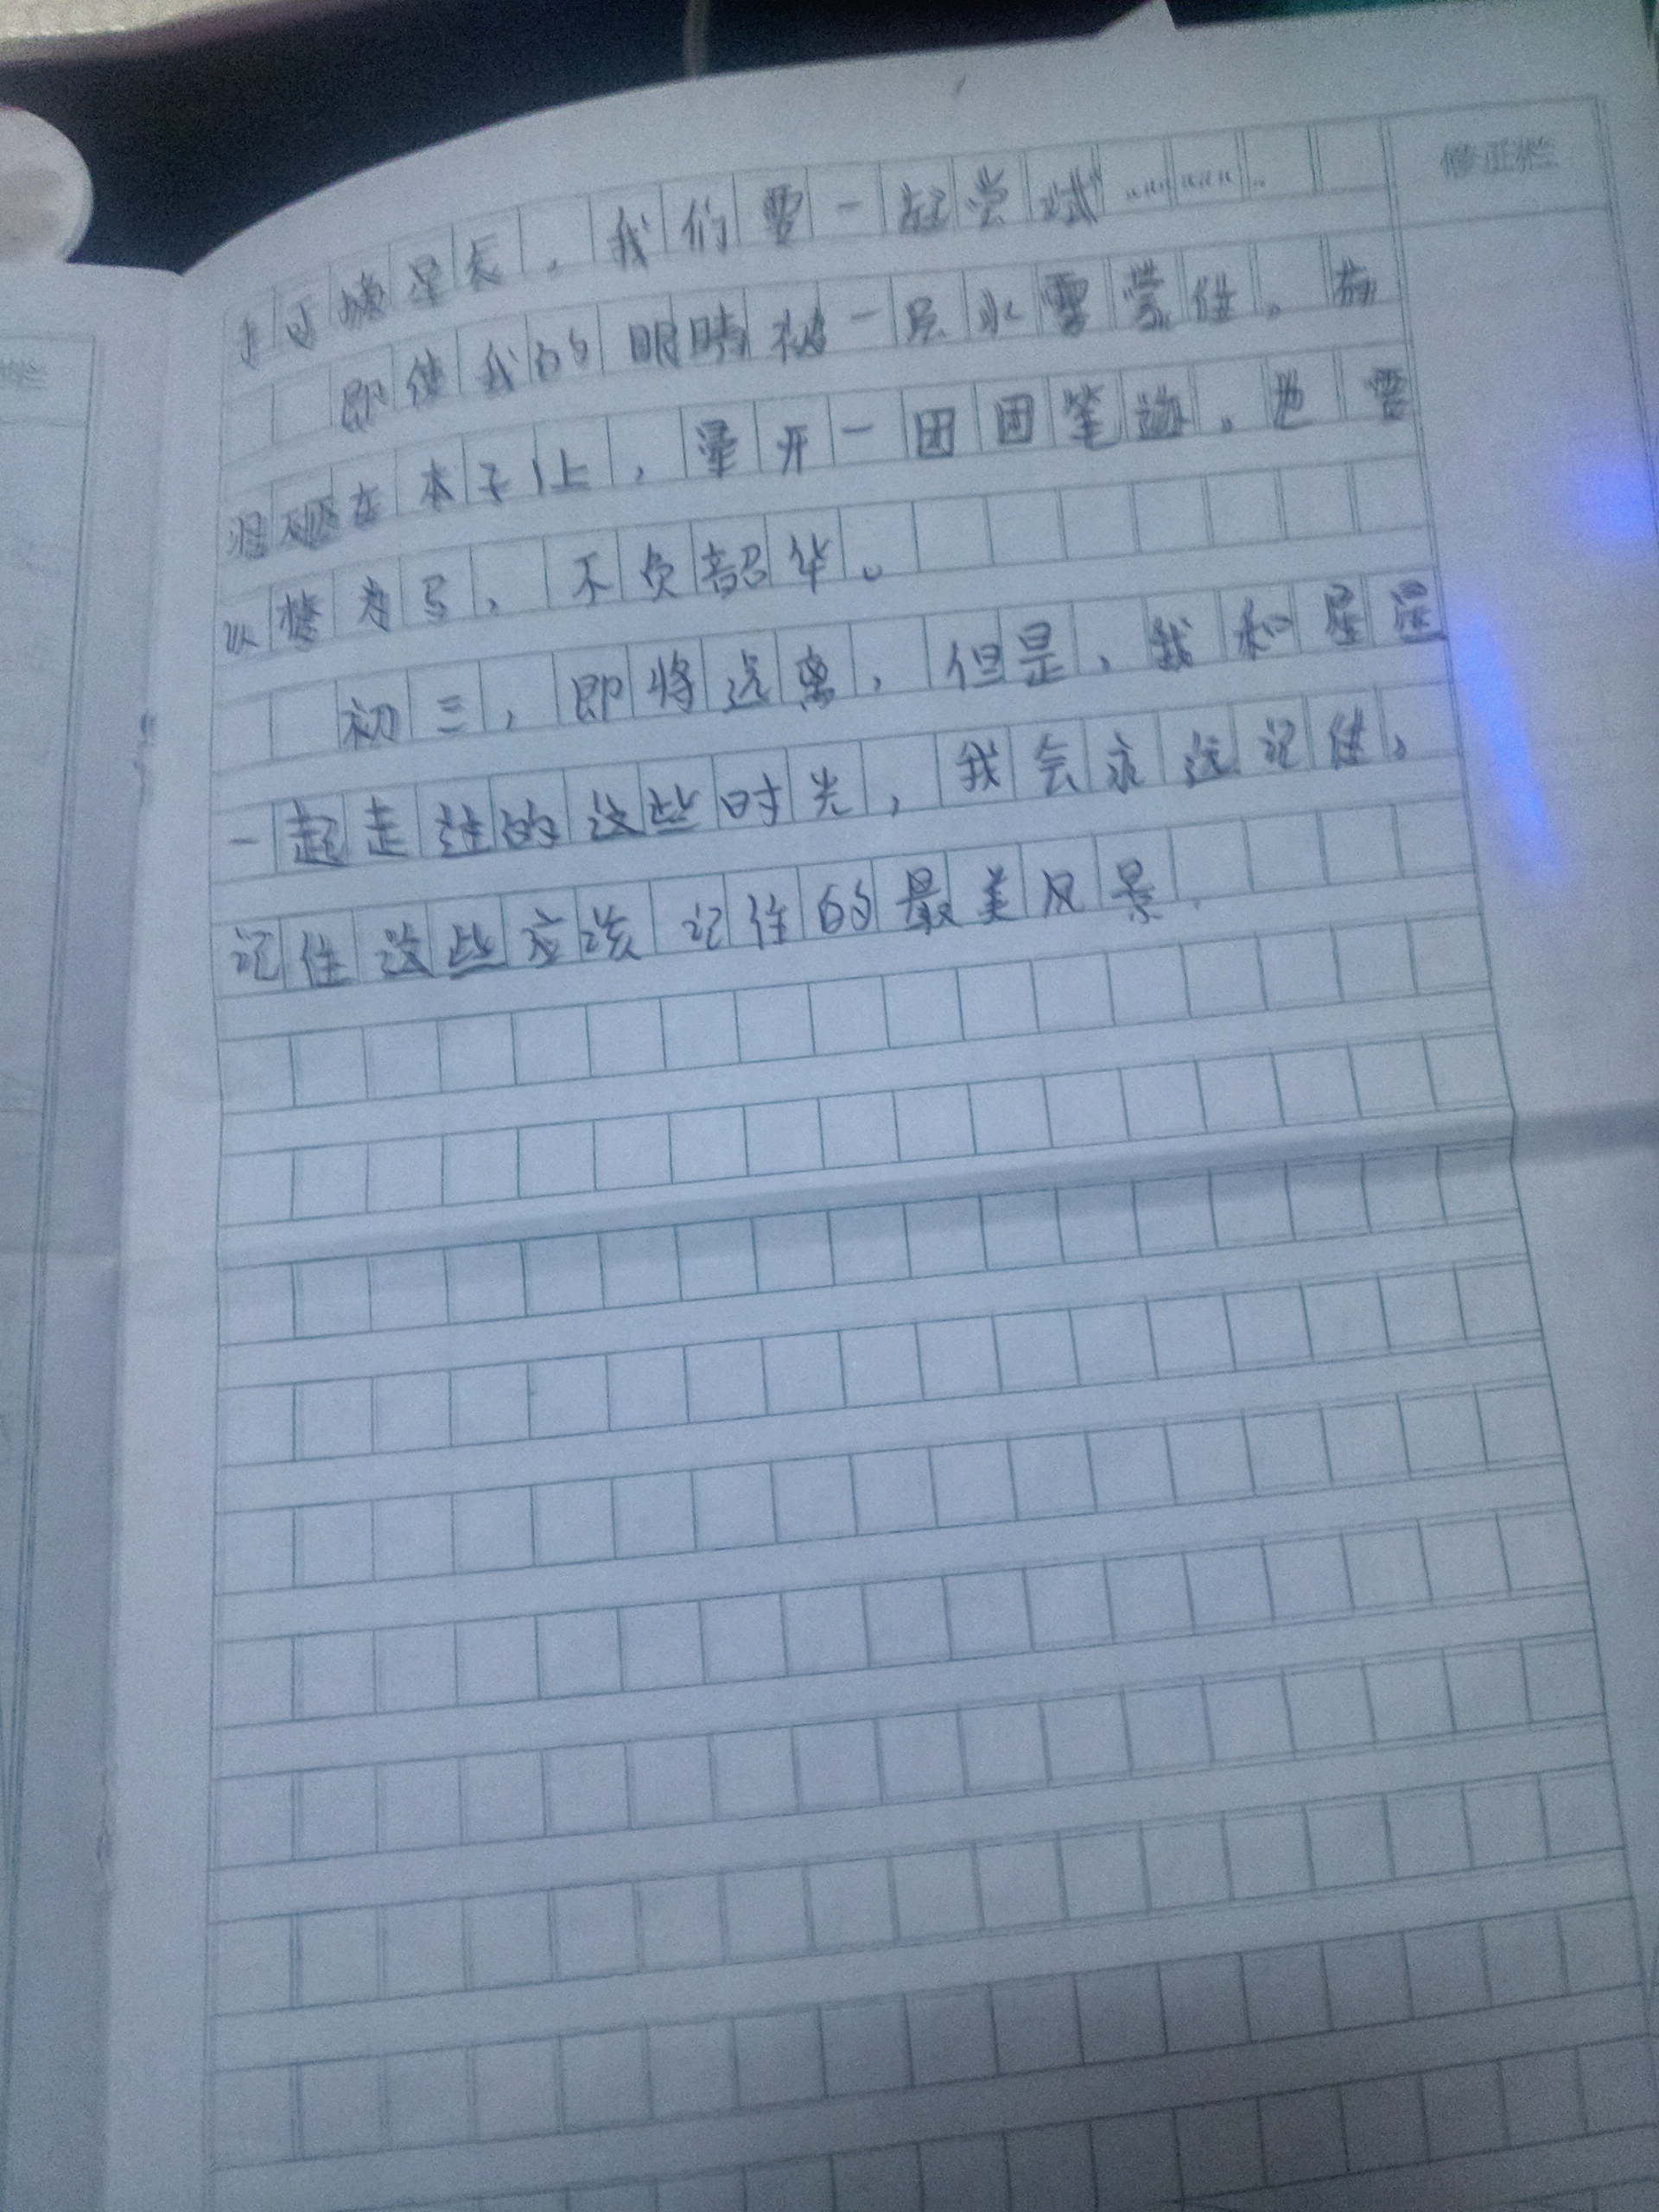 修正栏
星长,我们要一起尝试…………
即使我的眼睛被一层水雾蒙住。
在本子上,晕开一团团笔迹。也要
以梦为马,不负韶华。
初三,即将远离,但是,我和星星
一起走过的这些时光,我会永远记住,
记住这些应该记住的最美风景.